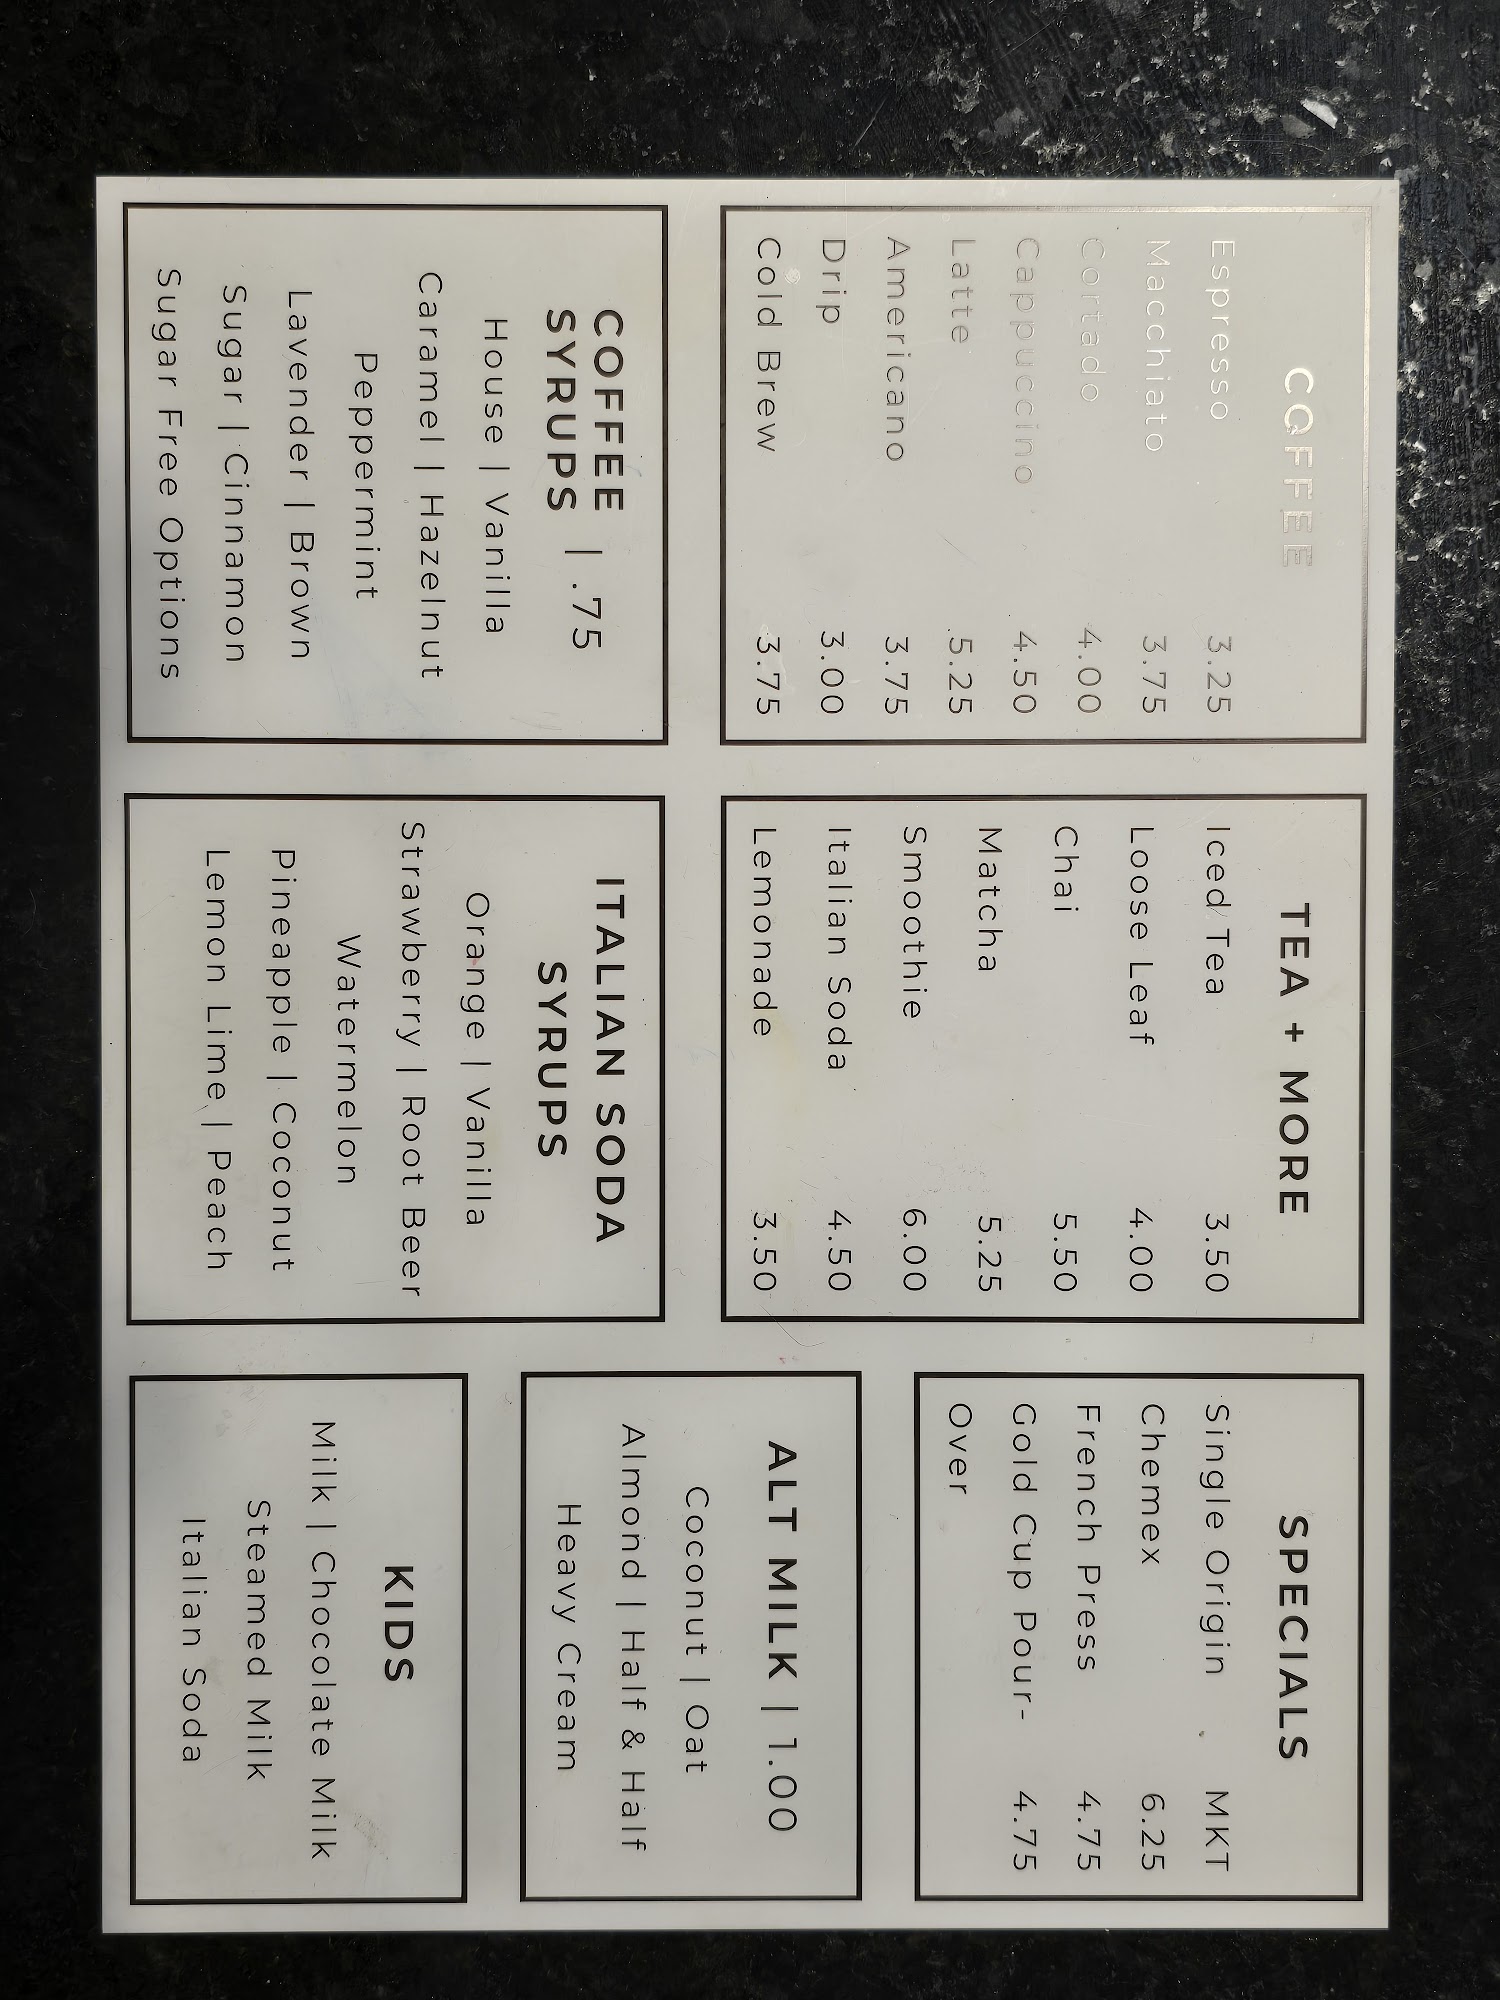 COFFEE
Espresso 3.25
Macchiato 3.75
Cortado 4.00
Cappuccino 4.50
Latte 5.25
Americano 3.75
Drip 3.00
Cold Brew 3.75
TEA + MORE
Iced Tea 3.50
Loose Leaf 4.00
Chai 5.50
Matcha 5.25
Smoothie 6.00
Italian Soda 4.50
Lemonade 3.50
SPECIALS
Single Origin MKT
Chemex 6.25
French Press 4.75
Gold Cup Pour- 4.75
Over
COFFEE
SYRUPS | .75
House | Vanilla
Caramel | Hazelnut
Peppermint
Lavender | Brown
Sugar | Cinnamon
Sugar Free Options
ITALIAN SODA
SYRUPS
Orange | Vanilla
Strawberry | Root Beer
Watermelon
Pineapple | Coconut
Lemon Lime | Peach
ALT MILK | 1.00
Coconut | Oat
Almond | Half & Half
Heavy Cream
KIDS
Milk | Chocolate Milk
Steamed Milk
Italian Soda